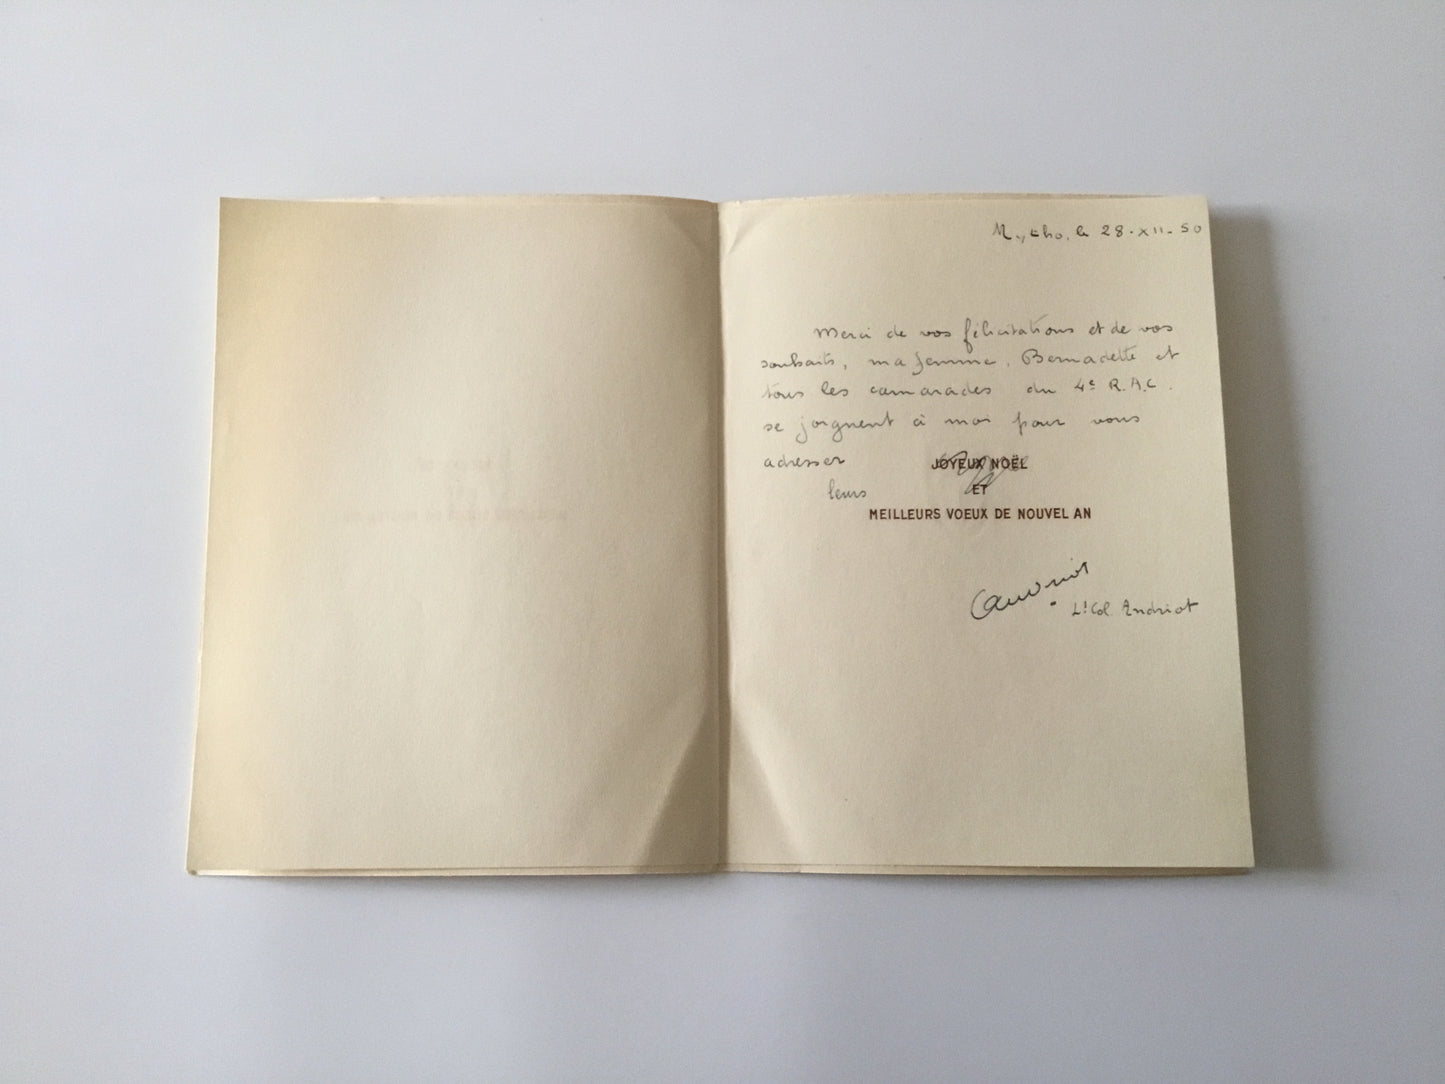 Mytho, le 28-XII-50
Merci de vos félicitations et de vos
souhaits, ma femme, Bernadette et
tous les camarades du 4e R.A.C.
se joignent à moi pour vous
adresser
JOYEUX NOËL
leurs
ET
MEILLEURS VOEUX DE NOUVEL AN
Lt Col. Andriot